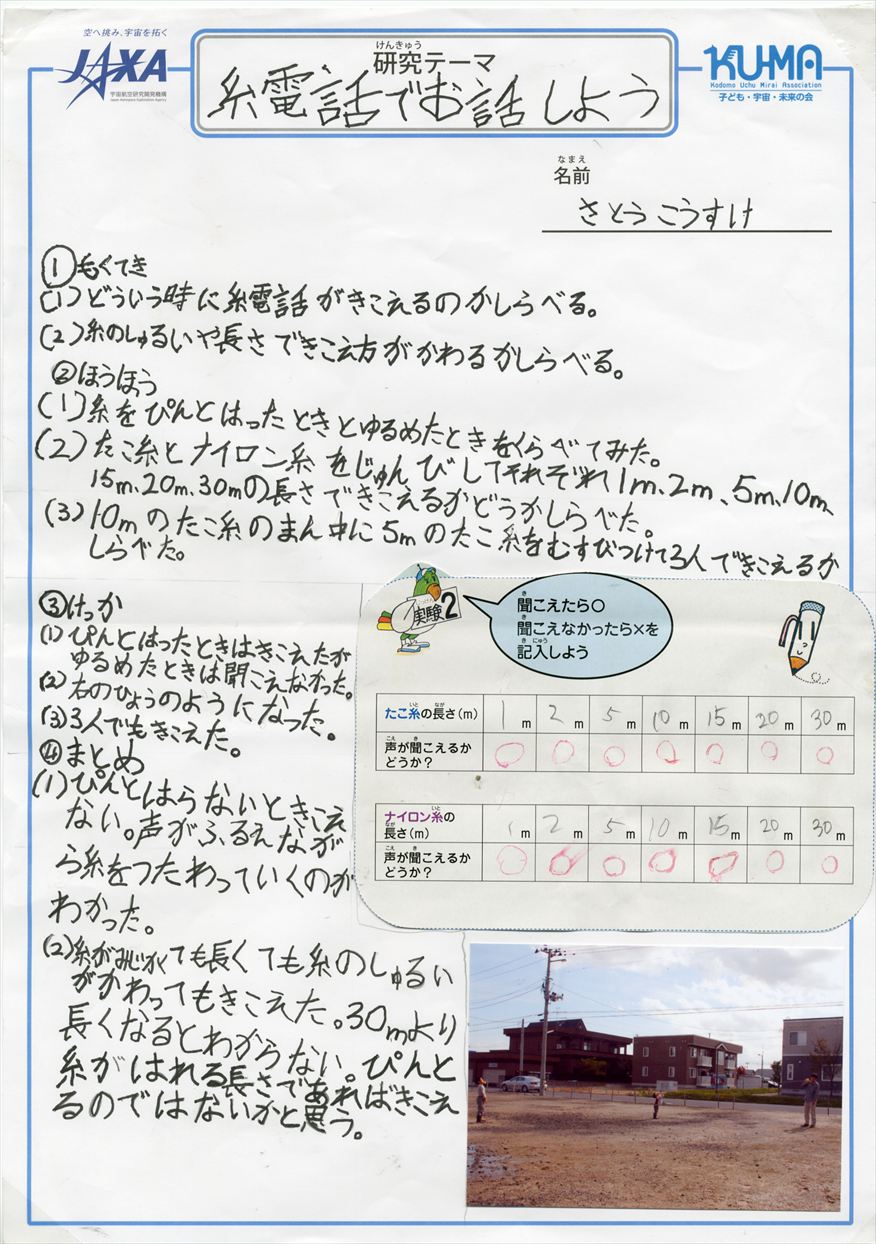 空へ挑み、宇宙を拓く
JAXA
宇宙航空研究開発機構
Japan Aerospace Exploration Agency
けんきゅう
研究テーマ
糸電話でお話しよう
KU-MA
Kodomo Uchu Mirai Association
子ども・宇宙・未来の会
なまえ
名前
さとう こうすけ
①もくてき
(1)どういう時に糸電話がきこえるのかしらべる。
(2)糸のしゅるいや長さできこえ方がかわるかしらべる。
②ほうほう
(1)糸をぴんとはったときとゆるめたときをくらべてみた。
(2)たこ糸とナイロン糸をじゅんびしてそれぞれ1m、2m、5m、10m、
15m、20m、30mの長さできこえるかどうかしらべた。
(3)10mのたこ糸のまん中に5mのたこ糸をむすびつけて3人できこえるか
しらべた。
③けっか
(1)ぴんとはったときはきこえたが
ゆるめたときは聞こえなかった。
(2)右のひょうのようになった。
(3)3人でもきこえた。
④まとめ
(1)ぴんとはらないときこえ
ない。声がふるえなが
ら糸をつたわっていくのが
わかった。
(2)糸がみじかくても長くても糸のしゅるい
がかわってもきこえた。30mより
長くなるとわからない。ぴんと
糸がはれる長さであればきこえ
るのではないかと思う。
実験2
き
聞こえたら○
き
聞こえなかったら×を
きにゅう
記入しよう
いと なが
たこ糸の長さ(m) 1m 2m 5m 10m 15m 20m 30m
こえ き
声が聞こえるか
どうか? ○ ○ ○ ○ ○ ○ ○
いと
ナイロン糸の
なが
長さ(m) 1m 2m 5m 10m 15m 20m 30m
こえ き
声が聞こえるか
どうか? ○ ○ ○ ○ ○ ○ ○